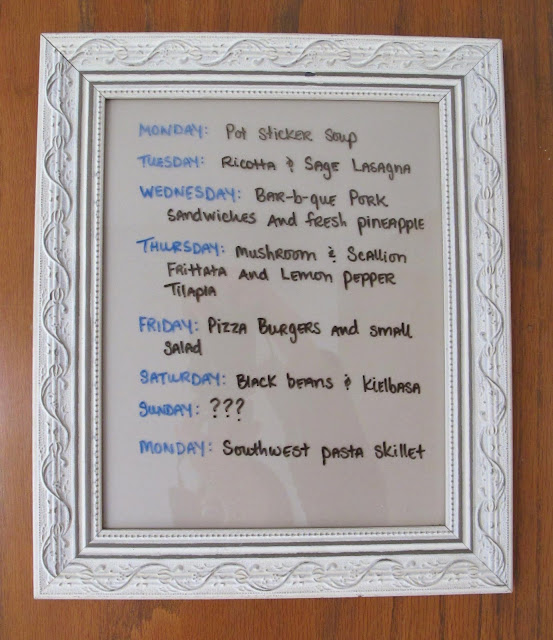 MONDAY: Pot Sticker Soup
TUESDAY: Ricotta & Sage Lasagna
WEDNESDAY: Bar-b-que Pork
Sandwiches and fresh pineapple
THURSDAY: Mushroom & Scallion
Frittata and Lemon Pepper
Tilapia
FRIDAY: Pizza Burgers and small
salad
SATURDAY: Black beans & Kielbasa
SUNDAY: ???
MONDAY: Southwest pasta skillet